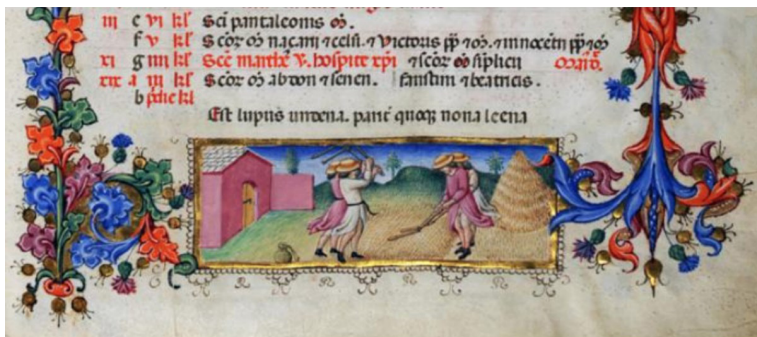 iii e vi kl' Sci pantaleonis m.
f v kl' Scor m nazarii et celsi. et victoris pp et m. et innocetii pp et
xi g iiii kl' Sce marthe v. hospite xpi et scor m siplicii
xix a iii kl' Scor m abdon et senen. faustini et beatricis.
b pdie kl
Est lupus undena. pariter quoque nona leena